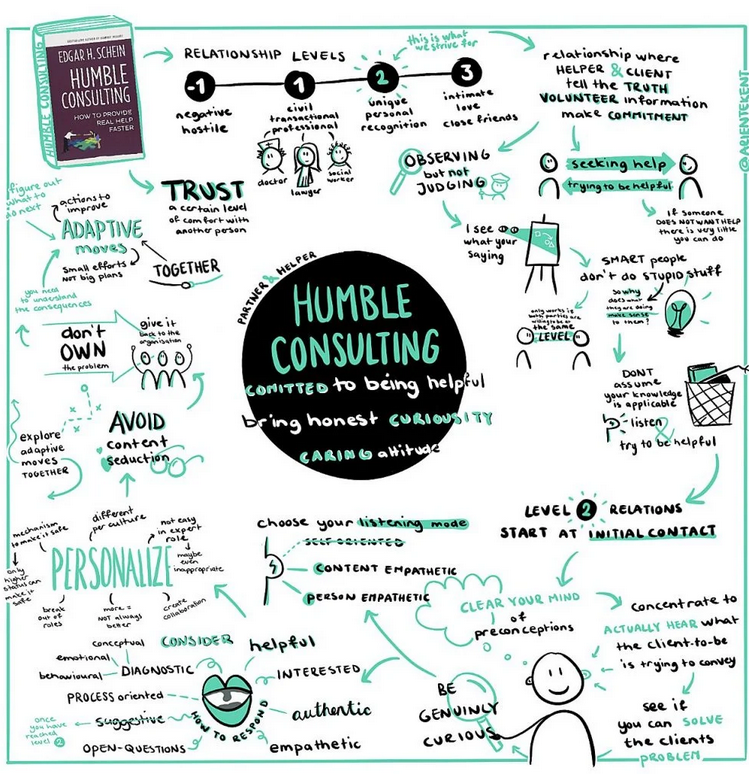 HUMBLE CONSULTING
EDGAR H. SCHEIN
HUMBLE
CONSULTING
HOW TO PROVIDE
REAL HELP
FASTER
RELATIONSHIP LEVELS
-1
1
2
3
negative
hostile
civil
transactional
professional
unique
personal
recognition
intimate
love
close friends
this is what
we strive for
doctor
lawyer
social
worker
relationship where
HELPER & CLIENT
tell the TRUTH
VOLUNTEER information
make COMMITMENT
@ARIENTEKENT
OBSERVING
but not
JUDGING
seeking help
trying to be helpful
If someone
DOES NOT WANT HELP
there is very little
you can do
I see
what your
saying
only works if
both parties are
willing to be at
the same
LEVEL
SMART people
don't do STUPID stuff
So why
does what
they are doing
make sense
to them?
DON'T
assume
your knowledge
is applicable
listen
&
try to be helpful
TRUST
a certain level
of comfort with
another person
figure out
what to
do next
actions to
improve
ADAPTIVE
moves
small efforts
NOT big plans
TOGETHER
you need
to understand
the consequences
don't
OWN
the problem
give it
back to the
organisation
AVOID
content
seduction
explore
adaptive
moves
TOGETHER
PARTNER & HELPER
HUMBLE
CONSULTING
COMITTED to being helpful
bring honest CURIOUSITY
CARING attitude
LEVEL 2 RELATIONS
START AT INITIAL CONTACT
CLEAR YOUR MIND
of
preconceptions
concentrate to
ACTUALLY HEAR what
the client-to-be
is trying to convey
see if
you can SOLVE
the clients
PROBLEM
BE
GENUINLY
CURIOUS
choose your listening mode
SELF ORIENTED
CONTENT EMPATHETIC
PERSON EMPATHETIC
PERSONALIZE
mechanism
to make it safe
different
per culture
not easy
in expert
role
maybe
even
inappropriate
only
higher
status can
make it
safe
break
out of
roles
more =
NOT always
better
create
collaboration
CONSIDER
HOW TO RESPOND
helpful
INTERESTED
authentic
empathetic
conceptual
emotional
behavioural
DIAGNOSTIC
PROCESS oriented
suggestive
once
you have
reached
level 2
OPEN-QUESTIONS